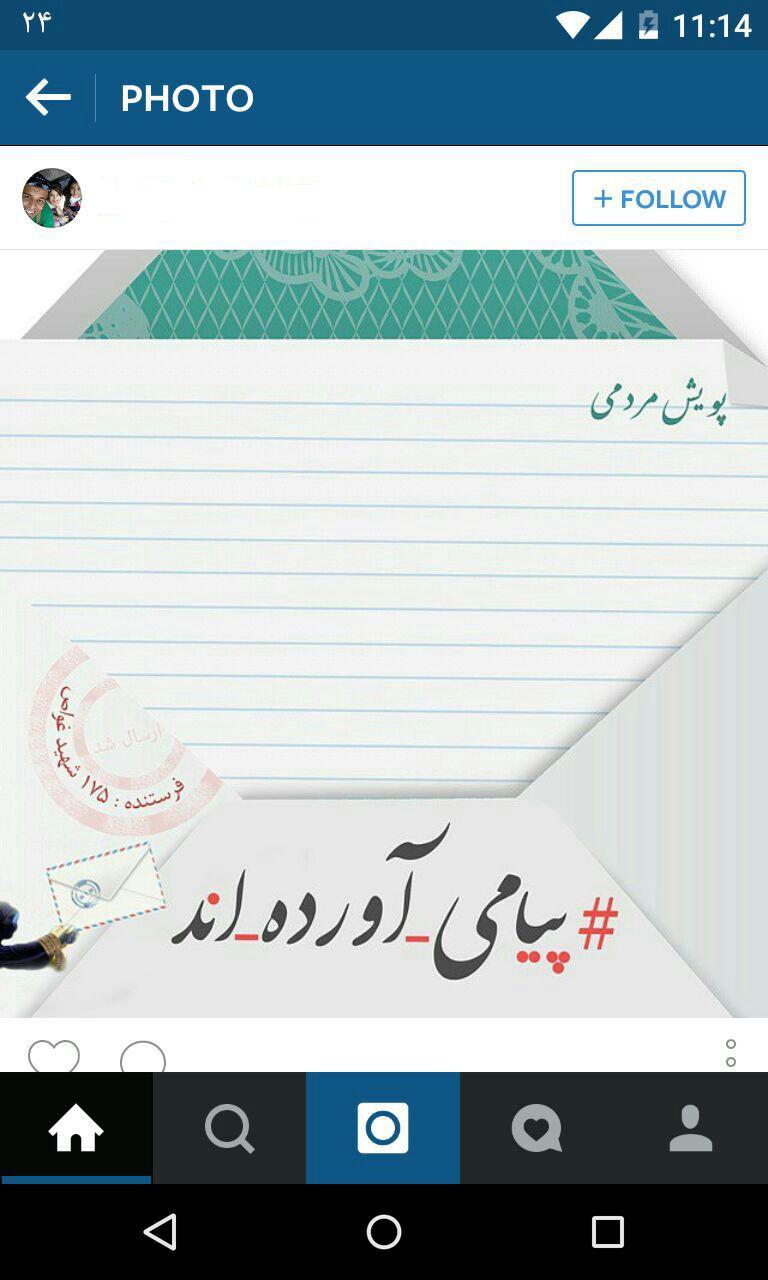 ۲۴ 11:14
PHOTO
+ FOLLOW
پویش مردمی
ارسال شد
فرستنده : ۱۷۵ شهید غواص
#پیامی_آورده_اند